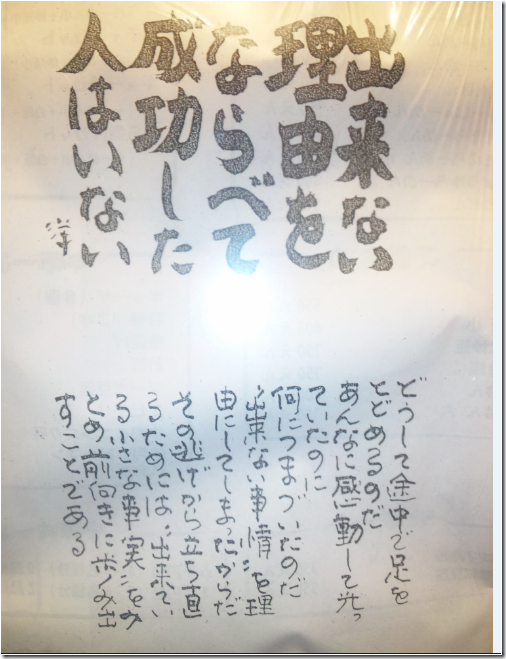 出来ない
理由を
ならべて
成功した
人はいない
どうして途中で足を
とどめるのだ
あんなに感動して光っ
ていたのに
何につまづいたのだ
"出来ない事情"を理
由にしてしまったからだ
その逃げから立ち直
るためには"出来てい
る小さな事実"をみ
とめ前向きに歩み出
すことである